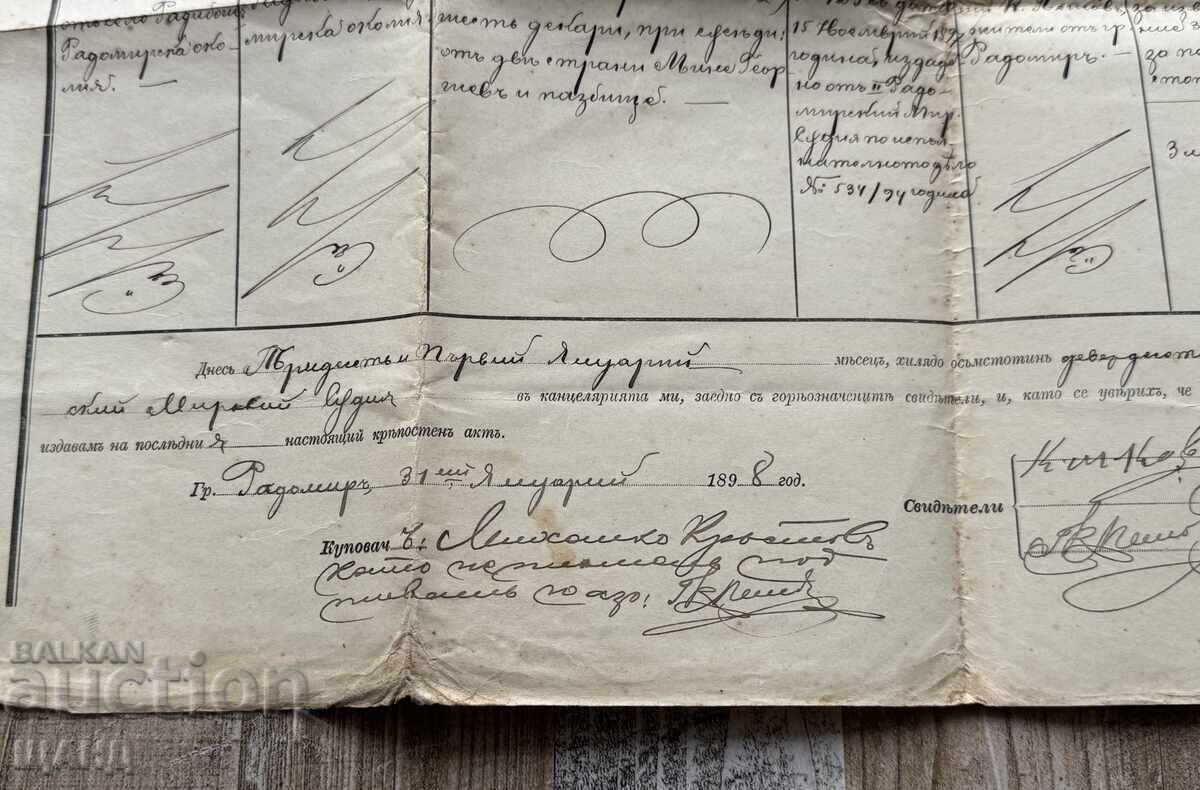 отъ село Радибошъ
Радомирска око-
лия. —
мирска околия.
шесть декари, при съседи:
отъ двѣ страни Мине Геор
гиевъ и пазбище. —
15 Ноемврий 1897
година, издаде-
но отъ II Радо-
мирский Мир.
Судия по испъл
нителното дѣло
№ 534/94 година
жители отъ гр.
Радомиръ. —
за по
Днесь Тридесеть и Първий Януарий мѣсец, хилядо осьмстотинь деведесет
ский Мировий Судия въ канцелярията ми, заедно съ горѣозначенитѣ свидѣтели, и, като се увѣрихъ, че
издавам на послѣдния настоящий крѣпостенъ актъ.
Гр. Радомиръ, 31ий Януарий 1898 год.
Свидѣтели
Куповач ъ: Михалко Кръстовъ
като неграмотенъ под
писвамъ го азъ:
BALKAN
auction